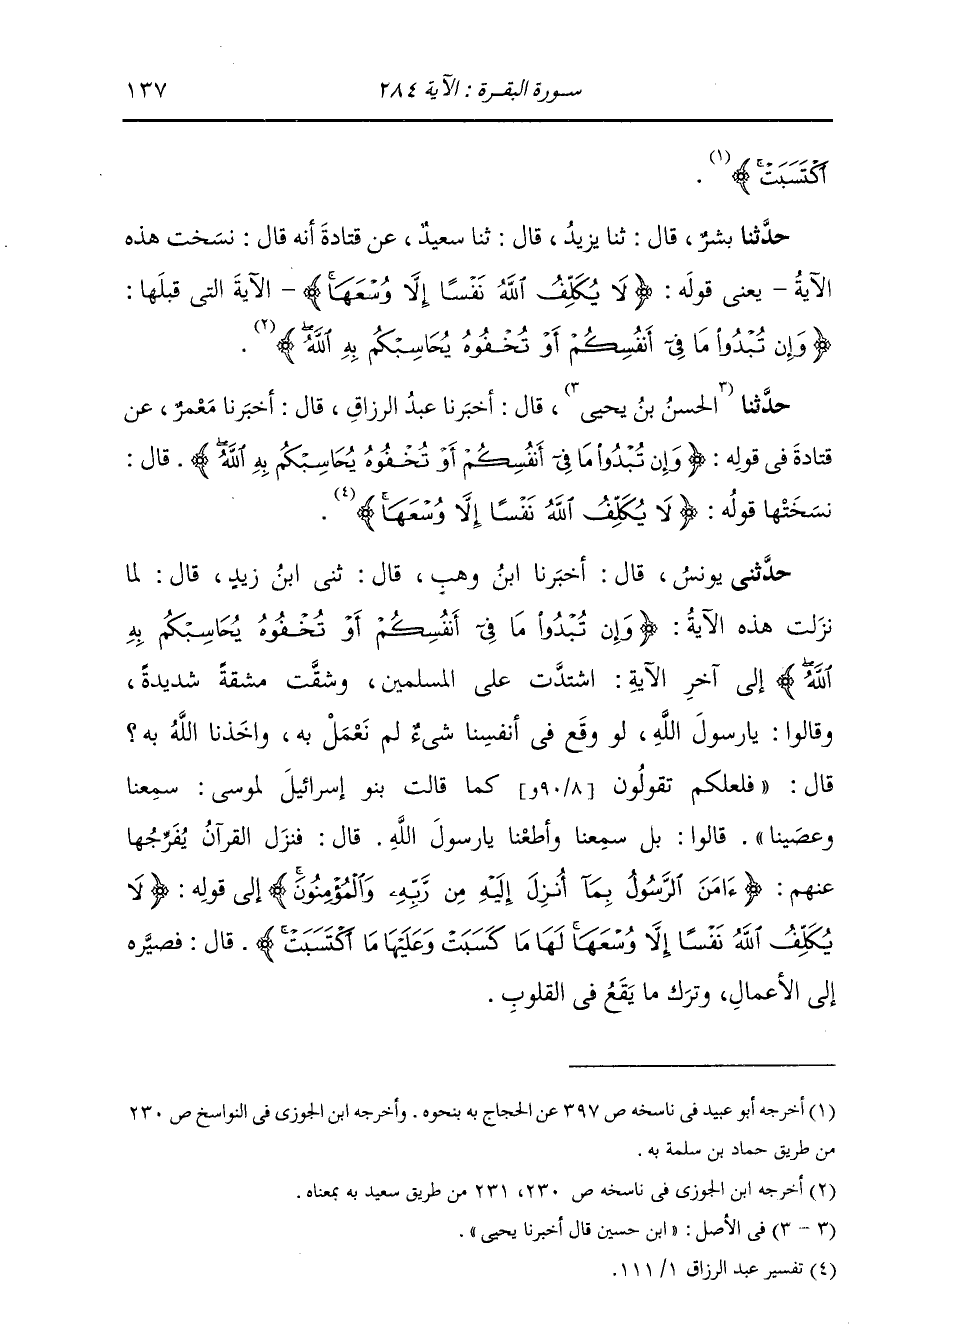 سورة البقرة : الآية ٢٨٤
١٣٧
ٱكْتَسَبَتْ ﴾(١) .
حدَّثنا بشرٌ ، قال : ثنا يزيدُ ، قال : ثنا سعيدٌ ، عن قتادةَ أنه قال : نسَخت هذه
الآيةُ - يعنى قولَه : ﴿ لَا يُكَلِّفُ ٱللَّهُ نَفْسًا إِلَّا وُسْعَهَاۚ ﴾ - الآيةَ التى قبلَها :
﴿ وَإِن تُبْدُوا۟ مَا فِىٓ أَنفُسِكُمْ أَوْ تُخْفُوهُ يُحَاسِبْكُم بِهِ ٱللَّهُۖ ﴾(٢) .
حدَّثنا (٣الحسنُ بنُ يحيى٣) ، قال : أخبَرنا عبدُ الرزاقِ ، قال : أخبَرنا مَعْمرٌ ، عن
قتادةَ فى قولِه : ﴿ وَإِن تُبْدُوا۟ مَا فِىٓ أَنفُسِكُمْ أَوْ تُخْفُوهُ يُحَاسِبْكُم بِهِ ٱللَّهُۖ ﴾ . قال :
نسَخَتْها قولُه : ﴿ لَا يُكَلِّفُ ٱللَّهُ نَفْسًا إِلَّا وُسْعَهَاۚ ﴾(٤) .
حدَّثنى يونسُ ، قال : أخبَرنا ابنُ وهبٍ ، قال : ثنى ابنُ زيدٍ ، قال : لما
نزَلت هذه الآيةُ : ﴿ وَإِن تُبْدُوا۟ مَا فِىٓ أَنفُسِكُمْ أَوْ تُخْفُوهُ يُحَاسِبْكُم بِهِ
ٱللَّهُۖ ﴾ إلى آخرِ الآيةِ : اشتدَّت على المسلمين ، وشقَّت مشقةً شديدةً ،
وقالوا : يارسولَ اللَّهِ ، لو وقَع فى أنفسِنا شىءٌ لم نَعْمَلْ به ، واخَذنا اللَّهُ به ؟
قال : « فلعلكم تقولُون [٩٠/٨و] كما قالت بنو إسرائيلَ لموسى : سمِعنا
وعصَينا » . قالوا : بل سمِعنا وأطَعْنا يارسولَ اللَّهِ . قال : فنزَل القرآنُ يُفَرِّجُها
عنهم : ﴿ ءَامَنَ ٱلرَّسُولُ بِمَآ أُنزِلَ إِلَيْهِ مِن رَّبِّهِۦ وَٱلْمُؤْمِنُونَۚ ﴾ إلى قولِه : ﴿ لَا
يُكَلِّفُ ٱللَّهُ نَفْسًا إِلَّا وُسْعَهَاۚ لَهَا مَا كَسَبَتْ وَعَلَيْهَا مَا ٱكْتَسَبَتْۗ ﴾ . قال : فصيَّره
إلى الأعمالِ، وترَك ما يَقَعُ فى القلوبِ .
(١) أخرجه أبو عبيد فى ناسخه ص ٣٩٧ عن الحجاج به بنحوه . وأخرجه ابن الجوزى فى النواسخ ص ٢٣٠
من طريق حماد بن سلمة به .
(٢) أخرجه ابن الجوزى فى ناسخه ص ٢٣٠، ٢٣١ من طريق سعيد به بمعناه .
(٣ - ٣) فى الأصل : « ابن حسين قال أخبرنا يحيى » .
(٤) تفسير عبد الرزاق ١/ ١١١.